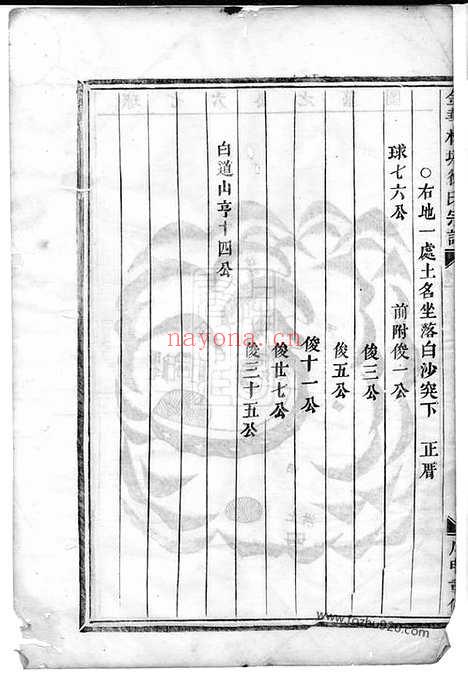 氏宗譜
○右地一處土名坐落白沙突下 正厝
球七六公 前附俊一公
俊三公
俊五公
俊十一公
俊廿七公
俊三十五公
白道山亨十四公
nayona.cn
www.fozhu920.com